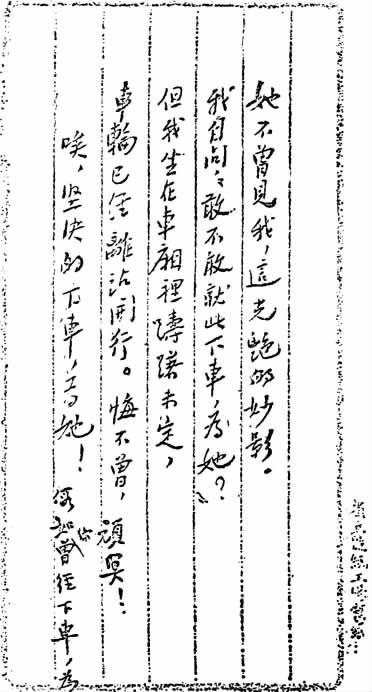 她不曾見我，這光艷的妙影。
我自問，敢不敢就此下車，為她？
但我坐在車廂裡躊躇未定，
車輪已經離站開行。悔不曾，頑冥！
唉，堅決的下車，為她！
你曾經下車，為